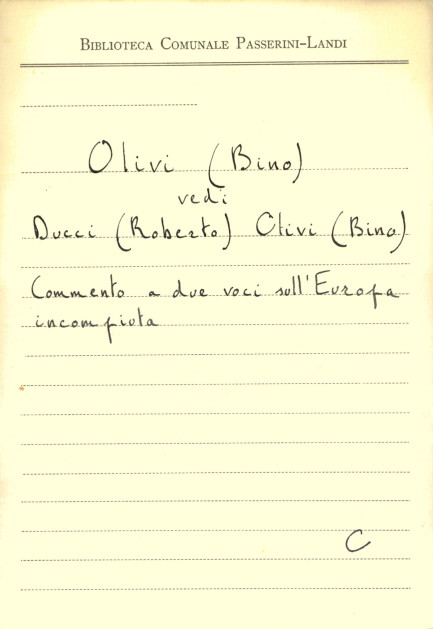 BIBLIOTECA COMUNALE PASSERINI-LANDI
Olivi (Bino)
vedi
Ducci (Roberto) Olivi (Bino)
Commento a due voci sull'Europa
incompiuta
C